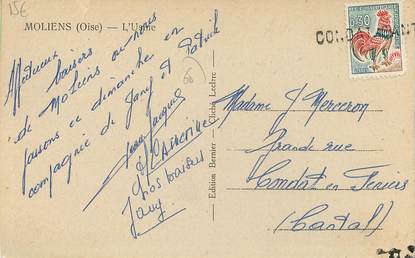 15€
MOLIENS (Oise) — L'Usine
Affectueux baisers
de Moliens où nous
passons ce dimanche en
compagnie de Jany et Patrick
Jean Jacques
Nos baisers
Jany
60
Edition Bernier - Cliché Leclère
0,30
CONDAT
Madame J Merceron
Grande rue
Condat en Feniers
(Cantal)